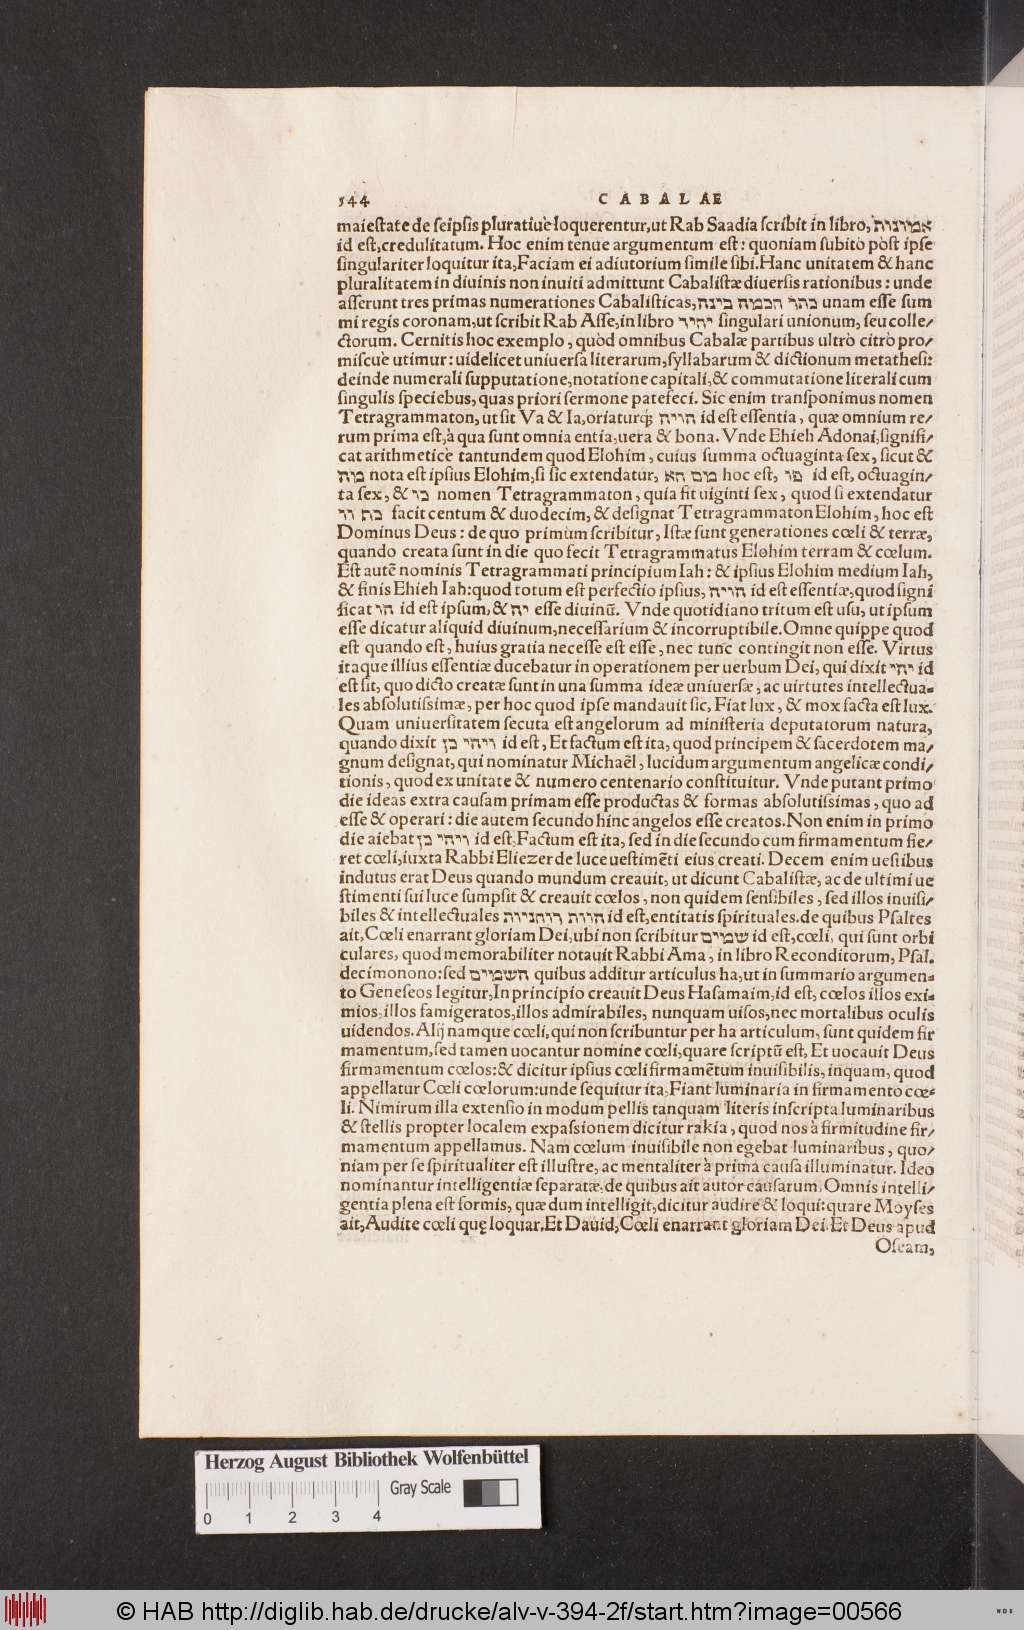 544 CABALAE
maiestate de seipsis pluratiuè loquerentur, ut Rab Saadia scribit in libro, אמונות
id est, credulitatum. Hoc enim tenue argumentum est: quoniam subito pòst ipse
singulariter loquitur ita, Faciam ei adiutorium simile sibi. Hanc unitatem & hanc
pluralitatem in diuinis non inuiti admittunt Cabalistæ diuersis rationibus: unde
asserunt tres primas numerationes Cabalisticas, כתר חכמה בינה unam esse sum
mi regis coronam, ut scribit Rab Asse, in libro יחיד singulari unionum, seu colle/
ctorum. Cernitis hoc exemplo, quòd omnibus Cabalæ partibus ultrò citrò pro/
miscuè utimur: uidelicet uniuersa literarum, syllabarum & dictionum metathesi:
deinde numerali supputatione, notatione capitali, & commutatione literali cum
singulis speciebus, quas priori sermone patefeci. Sic enim transponimus nomen
Tetragrammaton, ut sit Va & Ia, oriaturq́; הויה id est essentia, quæ omnium re/
rum prima est, à qua sunt omnia entia, uera & bona. Vnde Ehieh Adonai, signifi/
cat arithmeticè tantundem quod Elohim, cuius summa octuaginta sex, sicut &
מיה nota est ipsius Elohim, si sic extendatur, מים הא hoc est, פו id est, octuagin/
ta sex, & כו nomen Tetragrammaton, quia fit uiginti sex, quod si extendatur
כה וו facit centum & duodecim, & designat Tetragrammaton Elohim, hoc est
Dominus Deus: de quo primùm scribitur, Istæ sunt generationes cœli & terræ,
quando creata sunt in die quo fecit Tetragrammatus Elohim terram & cœlum.
Est autē nominis Tetragrammati principium Iah: & ipsius Elohim medium Iah,
& finis Ehieh Iah: quod totum est perfectio ipsius, הויה id est essentiæ, quod signi
ficat הו id est ipsum, & יה esse diuinū. Vnde quotidiano tritum est usu, ut ipsum
esse dicatur aliquid diuinum, necessarium & incorruptibile. Omne quippe quod
est quando est, huius gratia necesse est esse, nec tunc contingit non esse. Virtus
itaque illius essentiæ ducebatur in operationem per uerbum Dei, qui dixit יהי id
est sit, quo dicto creatæ sunt in una summa ideæ uniuersæ, ac uirtutes intellectua-
les absolutissimæ, per hoc quod ipse mandauit sic, Fiat lux, & mox facta est lux.
Quam uniuersitatem secuta est angelorum ad ministeria deputatorum natura,
quando dixit ויהי כן id est, Et factum est ita, quod principem & sacerdotem ma/
gnum designat, qui nominatur Michaël, lucidum argumentum angelicæ condi/
tionis, quod ex unitate & numero centenario constituitur. Vnde putant primo
die ideas extra causam primam esse productas & formas absolutissimas, quo ad
esse & operari: die autem secundo hinc angelos esse creatos. Non enim in primo
die aiebat ויהי כן id est, Factum est ita, sed in die secundo cum firmamentum fie/
ret cœli, iuxta Rabbi Eliezer de luce uestimēti eius creati. Decem enim uestibus
indutus erat Deus quando mundum creauit, ut dicunt Cabalistæ, ac de ultimi ue
stimenti sui luce sumpsit & creauit cœlos, non quidem sensibiles, sed illos inuisi/
biles & intellectuales הוות רוחניות id est, entitatis spirituales. de quibus Psaltes
ait, Cœli enarrant gloriam Dei, ubi non scribitur שמים id est, cœli, qui sunt orbi
culares, quod memorabiliter notauit Rabbi Ama, in libro Reconditorum, Psal.
decimonono: sed השמים quibus additur articulus ha, ut in summario argumen-
to Geneseos legitur, In principio creauit Deus Hasamaim, id est, cœlos illos exi-
mios, illos famigeratos, illos admirabiles, nunquam uisos, nec mortalibus oculis
uidendos. Alij namque cœli, qui non scribuntur per ha articulum, sunt quidem fir
mamentum, sed tamen uocantur nomine cœli, quare scriptū est, Et uocauit Deus
firmamentum cœlos: & dicitur ipsius cœli firmamētum inuisibilis, inquam, quod
appellatur Cœli cœlorum: unde sequitur ita, Fiant luminaria in firmamento cœ-
li. Nimirum illa extensio in modum pellis tanquam literis inscripta luminaribus
& stellis propter localem expassionem dicitur rakia, quod nos à firmitudine fir/
mamentum appellamus. Nam cœlum inuisibile non egebat luminaribus, quo/
niam per se spiritualiter est illustre, ac mentaliter à prima causa illuminatur. Ideo
nominantur intelligentiæ separatæ, de quibus ait autor causarum, Omnis intelli/
gentia plena est formis, quæ dum intelligit, dicitur audire & loqui: quare Moyses
ait, Audite cœli quę loquar. Et Dauid, Cœli enarrant gloriam Dei. Et Deus apud
Oseam,
Herzog August Bibliothek Wolfenbüttel
Gray Scale
0 1 2 3 4
© HAB http://diglib.hab.de/drucke/alv-v-394-2f/start.htm?image=00566